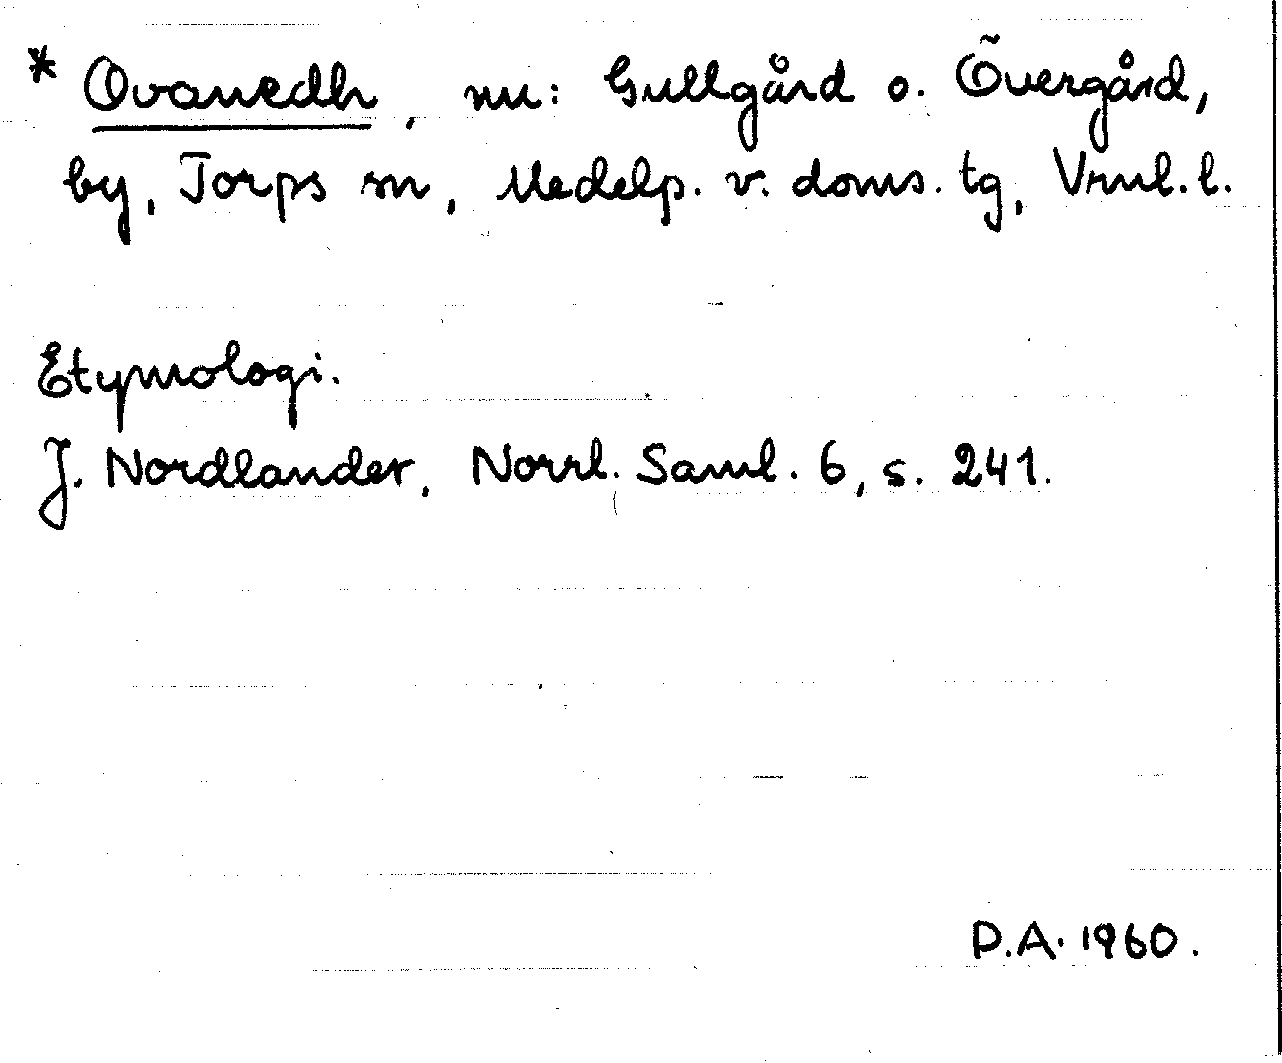 * Ovanedh, nu: Gullgård o. Övergård,
by, Torps sn, Medelp. v. doms. tg, Vrnl. l.
Etymologi.
J. Nordlander, Norrl. Saml. 6, s. 241.
D.A. 1960.